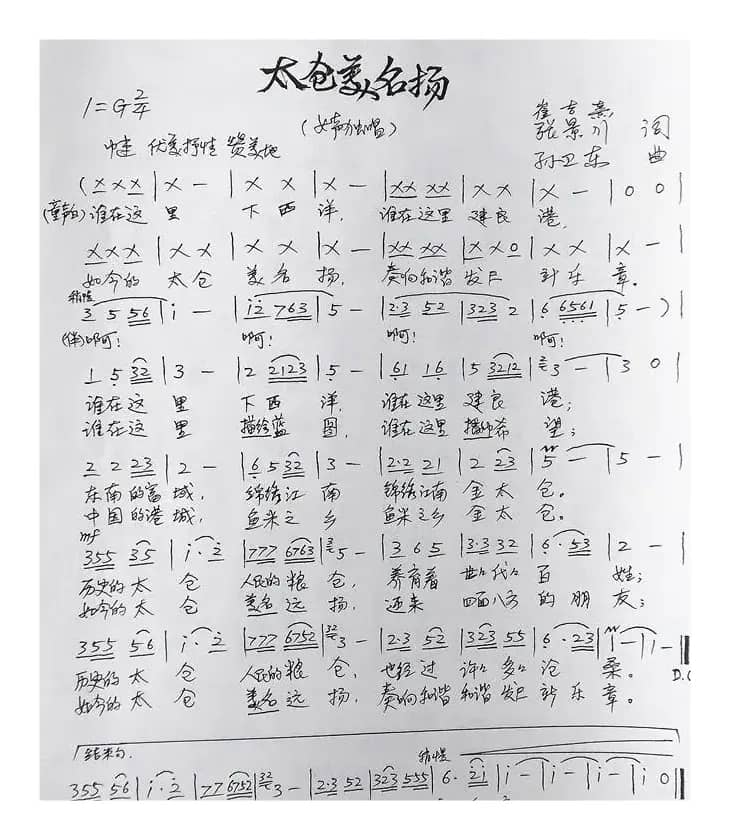 太仓美名扬
1=G 2/4
(女声独唱)
崔 吉
张 景 川 词
孙 卫 东 曲
中速 优美抒情 赞美地
(X X X | X — | X X | X — | XX XX | X X | X — | 0 0 |
(童声白) 谁在这 里 下 西 洋, 谁在这里 建 良 港,
X X X | X X | X X | X — | XX XX | X X 0 | X X | X — |
如今的 太 仓 美 名 扬, 奏响和谐 发展 新 乐 章。
稍慢
3 5 56 | i — | i2 763 | 5 — | 2·3 52 | 323 2 | 6 6561 | 5 — ) |
(伴)啊! 啊! 啊! 啊!
1 5 32 | 3 — | 2 2123 | 5 — | 61 16 | 5 3212 | 3 — | 3 0 |
谁在这 里 下 西 洋, 谁在这里 建 良 港;
谁在这 里 描绘蓝 图, 谁在这里 播种希 望;
2 2 23 | 2 — | 6 5 32 | 3 — | 2·2 21 | 2 23 | 5 — | 5 — |
东南的富 城, 锦绣江 南 锦绣江南 金 太 仓。
中国的港 城, 鱼米之 乡 鱼米之乡 金 太 仓。
mf
355 35 | i·2 | 777 6763 | 5 — | 3 6 5 | 3·3 32 | 6·53 | 2 — |
历史的 太 仓 人民的 粮 仓, 养育着 世世代代 百 姓;
如今的 太 仓 美名 远 扬, 迎来 四面八方 的 朋 友;
355 56 | i·2 | 777 6752 | 3 — | 2·3 52 | 323 55 | 6·23 | i — | i —
历史的 太 仓 人民的 粮 仓, 也经过 许许多多 沧 桑。
如今的 太 仓 美名 远 扬, 奏响和谐 和谐 发展 新 乐 章。
D.C
结束句 稍慢
355 56 | i·2 | 77 6752 | 3 — | 2·3 52 | 323 555 | 6·2i | i — | i — | i — | i 0